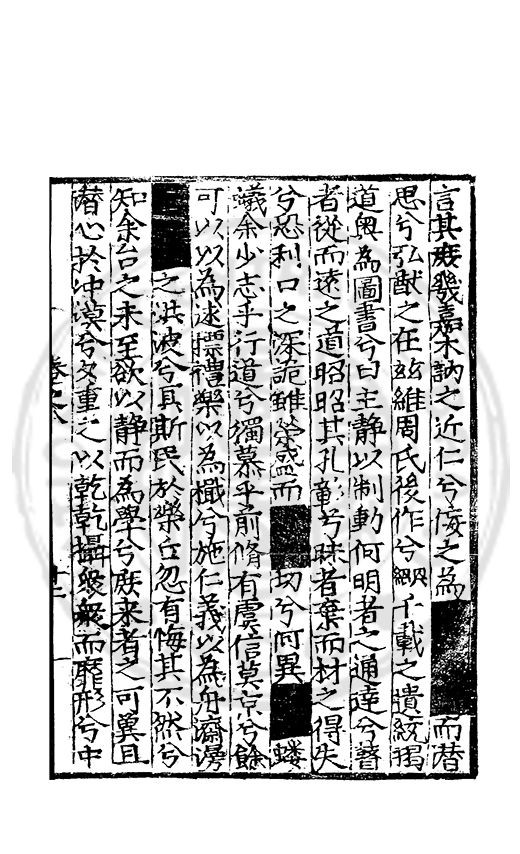 言其庶幾嘉木訥之近仁兮侮之為而替
思兮弘猷之在玆維周氏後作兮纘千載之遺統揭
道奧為圖書兮曰主静以制動何明者之通達兮瞽
者從而遠之道昭昭其孔彰兮昧者棄而材之得失
兮恐利口之深詭雖盛而切兮何異螻
蟻余少志乎行道兮獨慕乎前脩有虞信莫京兮餘
可以以為述摽禮樂以為檝兮施仁義以為舟濟滂
之洪波兮寘斯民於樂丘忽有悔其不然兮
知余台之未至欲以静而為學兮庶来者之可冀且
潛心扵冲漠兮爻重之以乾乾攝衆而靡形兮中
卷之八
十一